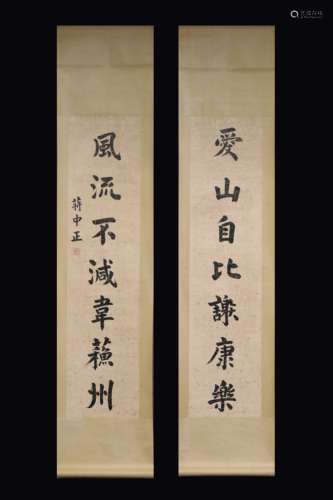 愛山自比謝康樂
風流不減韋蘇州
蔣中正